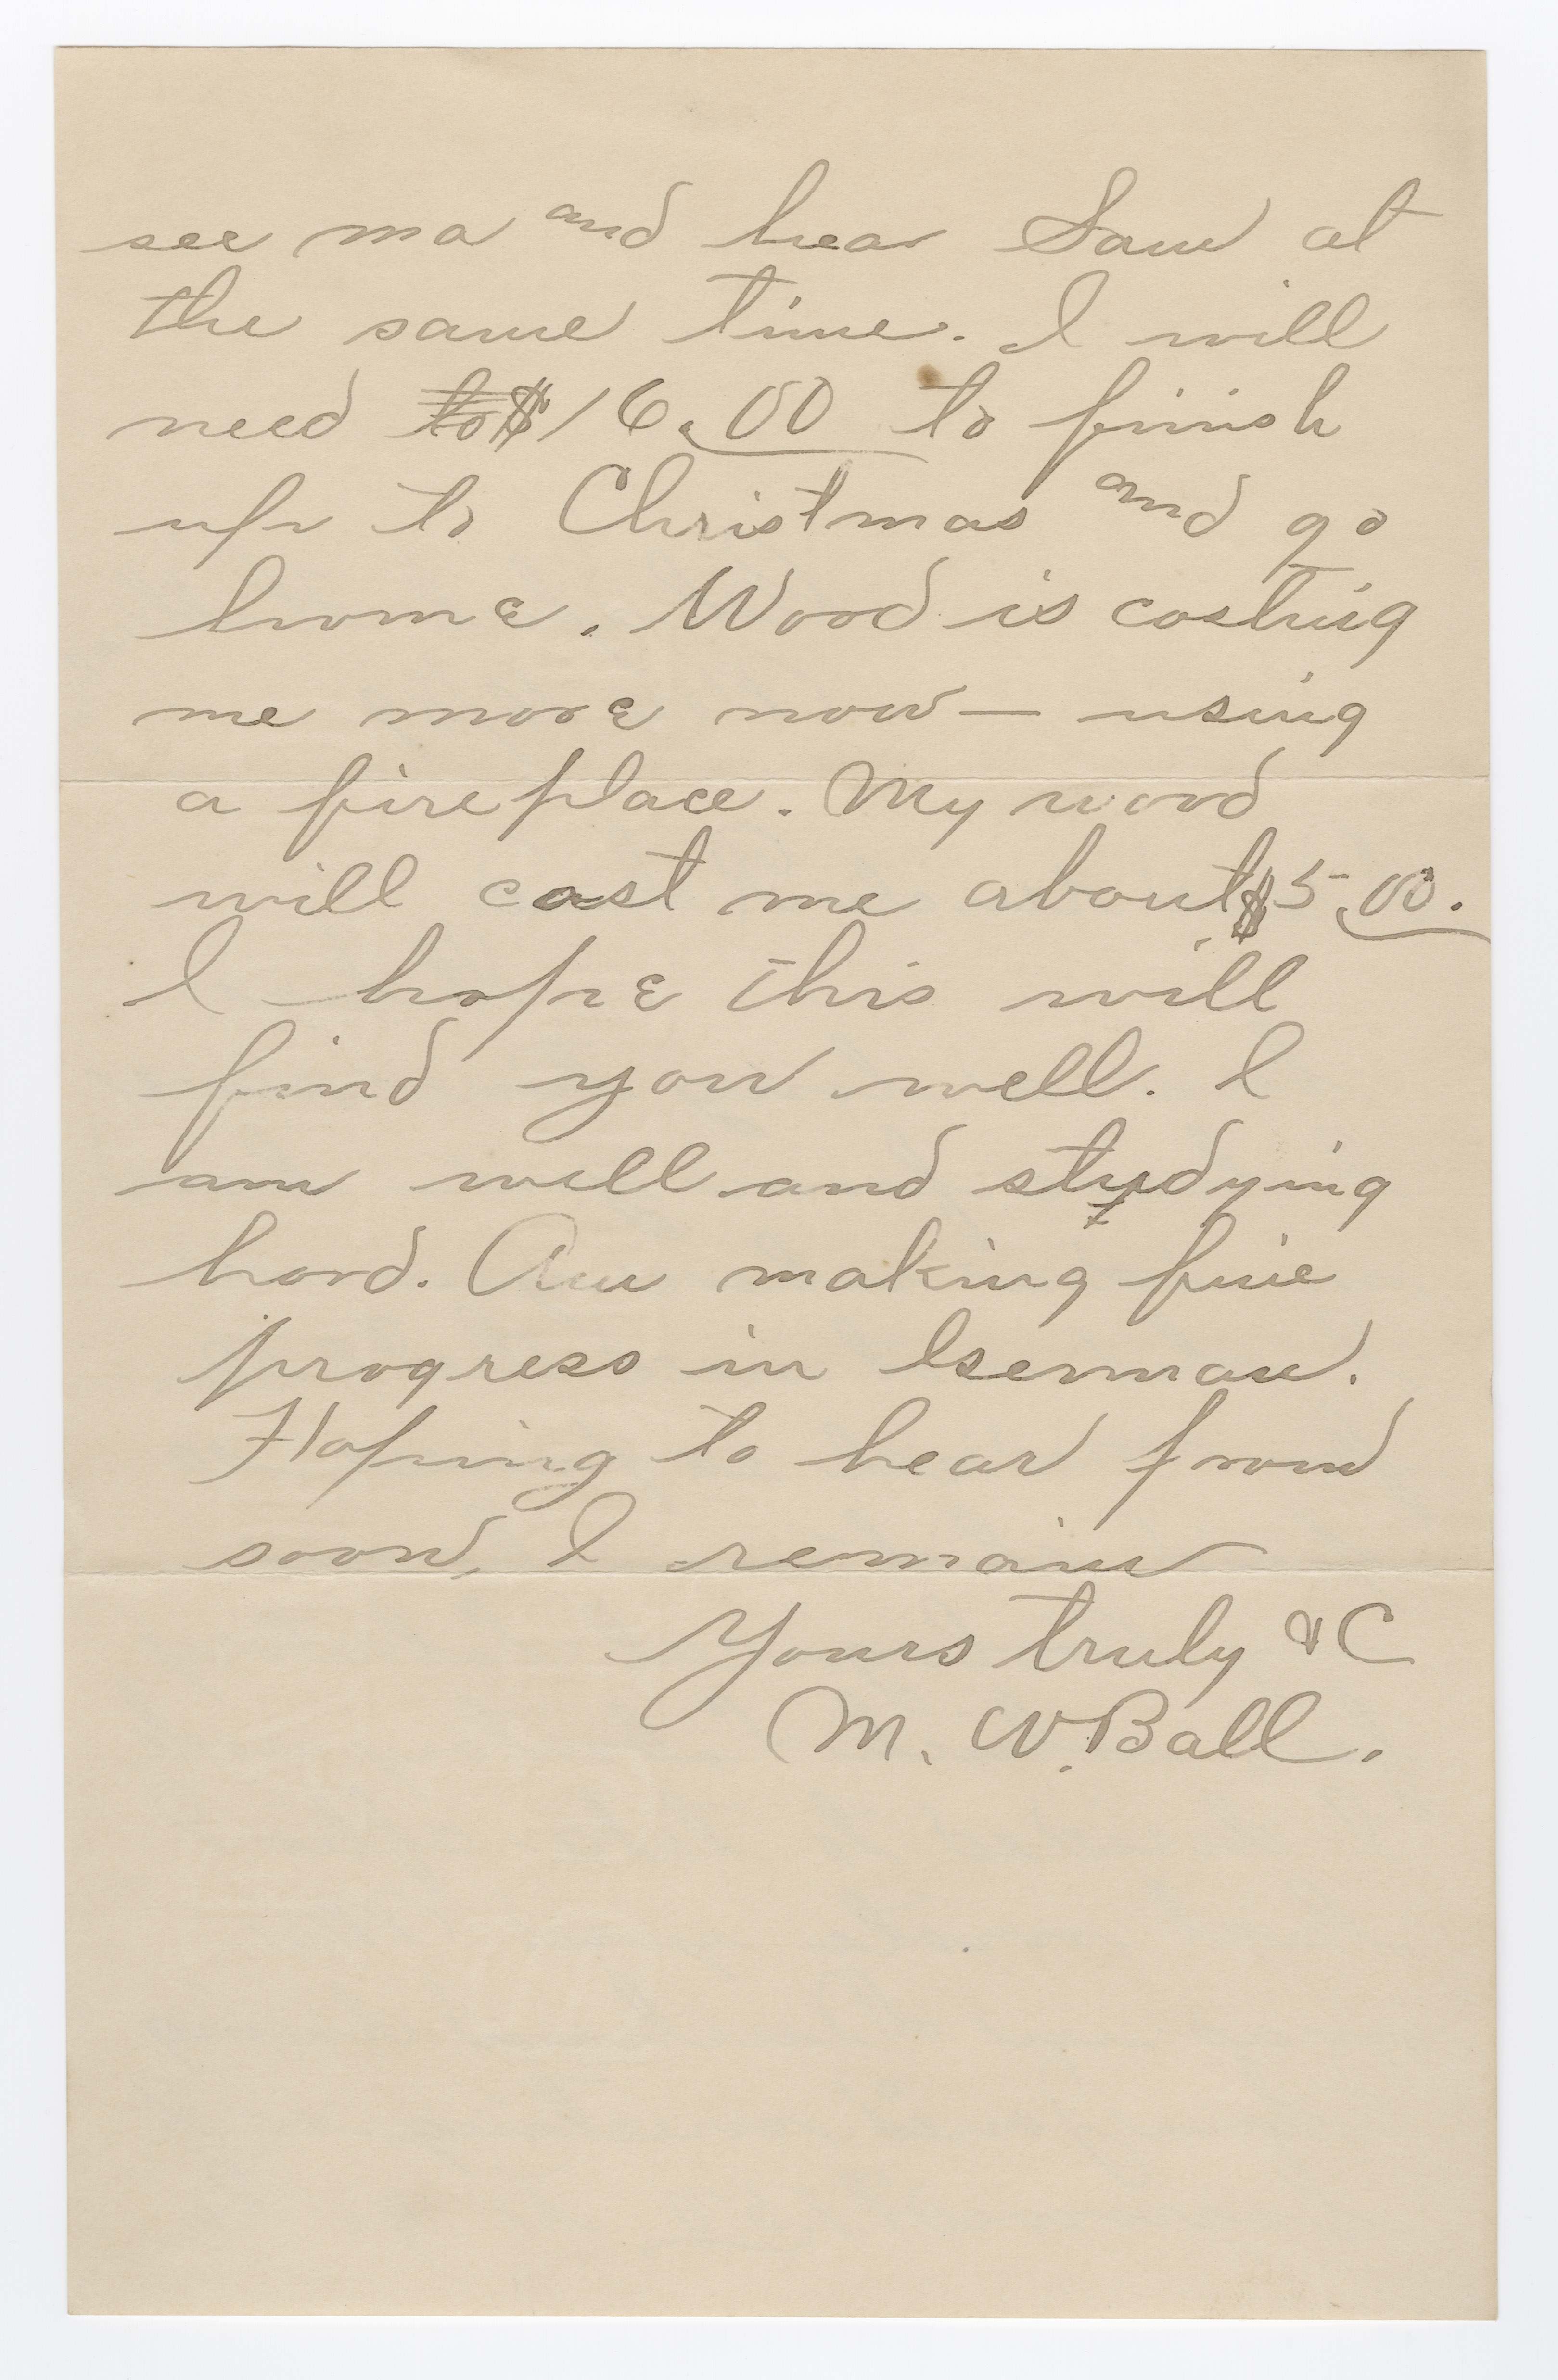 see ma and hear Sam at
the same time. I will
need to $16.00 to finish
up to Christmas and go
home. Wood is costing
me more now — using
a fireplace. My wood
will cost me about $5.00.
I hope this will
find you well. I
am well and studying
hard. Am making fine
progress in German.
Hoping to hear from
soon, I remain
Yours truly &C
M. W. Ball.